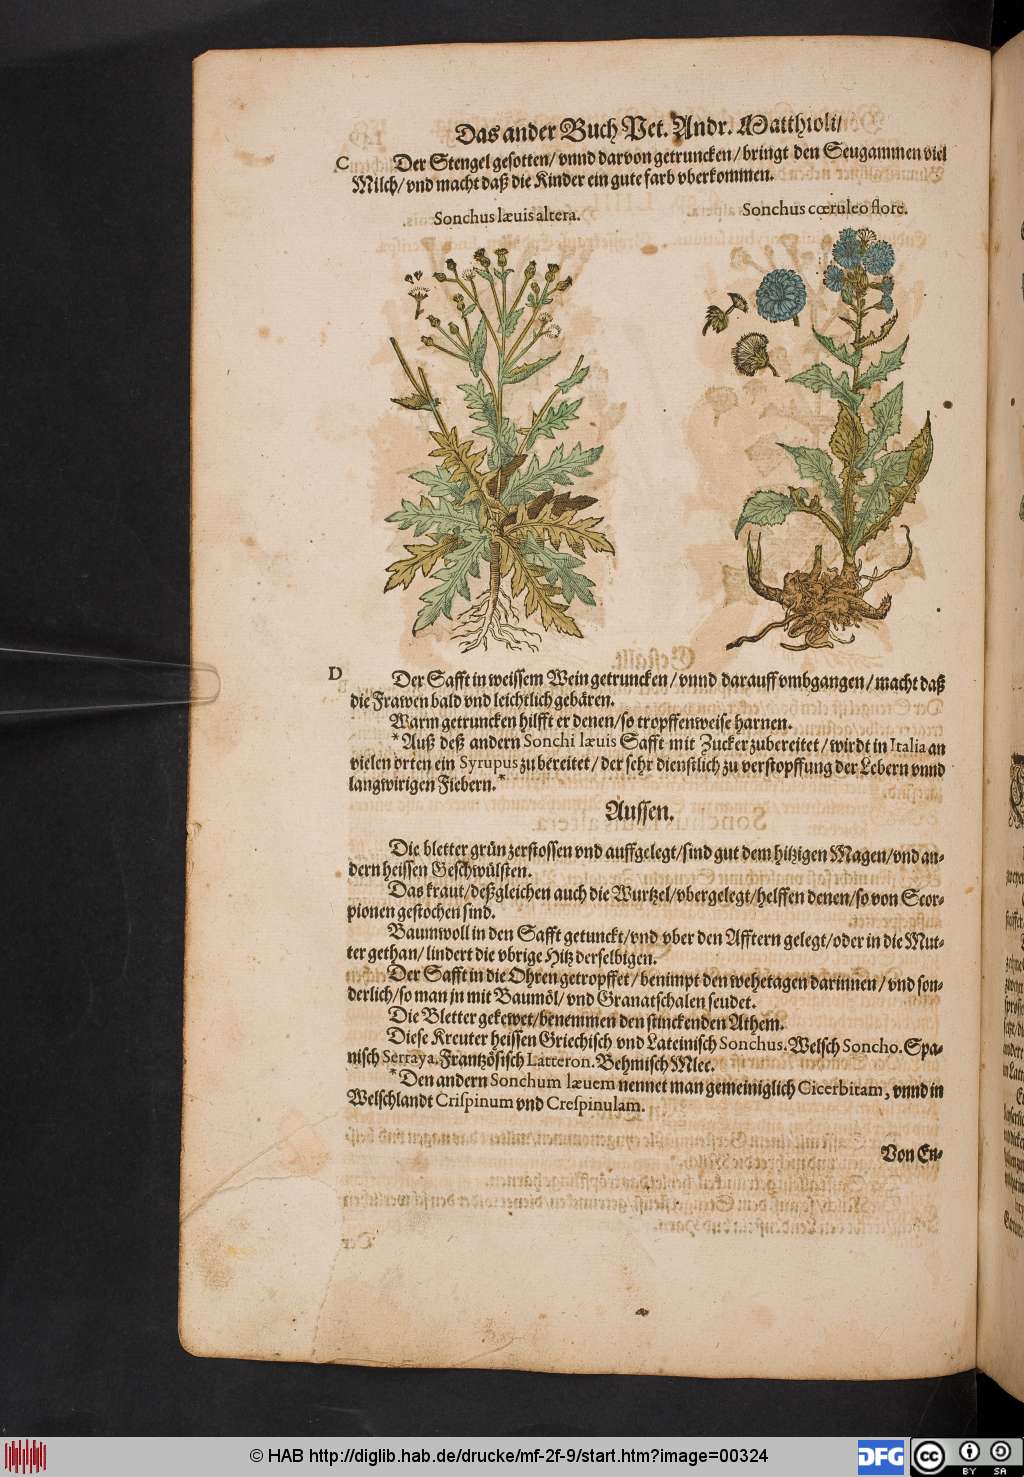 Das ander Buch Pet. Andr. Matthioli/
C Der Stengel gesotten/ vnnd darvon getruncken/ bringt den Seugammen viel
Milch/ vnd macht daß die Kinder ein gute farb vberkommen.
Sonchus lævis altera.
Sonchus cœruleo flore.
D Der Safft in weissem Wein getruncken/ vnnd darauff vmbgangen/ macht daß
die Frawen bald vnd leichtlich gebären.
Warm getruncken hilfft er denen/ so tropffenweise harnen.
*Auß deß andern Sonchi læuis Safft mit Zucker zubereitet/ wirdt in Italia an
vielen orten ein Syrupus zu bereitet/ der sehr dienstlich zu verstopffung der Lebern vnnd
langwirigen Fiebern.*
Aussen.
Die bletter grün zerstossen vnd auffgelegt/ sind gut dem hitzigen Magen/ vnd an-
dern heissen Geschwülsten.
Das kraut/ deßgleichen auch die Wurtzel/ vbergelegt/ helffen denen/ so von Scor-
pionen gestochen sind.
Baumwoll in den Safft getunckt/ vnd vber den Afftern gelegt/ oder in die Mut-
ter gethan/ lindert die vbrige Hitz derselbigen.
Der Safft in die Ohren getropffet/ benimpt den wehetagen darinnen/ vnd son-
derlich/ so man jn mit Baumöl/ vnd Granatschalen seudet.
Die Bletter gekewet/ benemmen den stinckenden Athem.
Diese Kreuter heissen Griechisch vnd Lateinisch Sonchus. Welsch Soncho. Spa-
nisch Serraya. Frantzösisch Latteron. Behmisch Mlec.
*Den andern Sonchum læuem nennet man gemeiniglich Cicerbitam, vnnd in
Welschlandt Crispinum vnd Crespinulam.
Von En-
© HAB http://diglib.hab.de/drucke/mf-2f-9/start.htm?image=00324
DFG
cc
BY SA